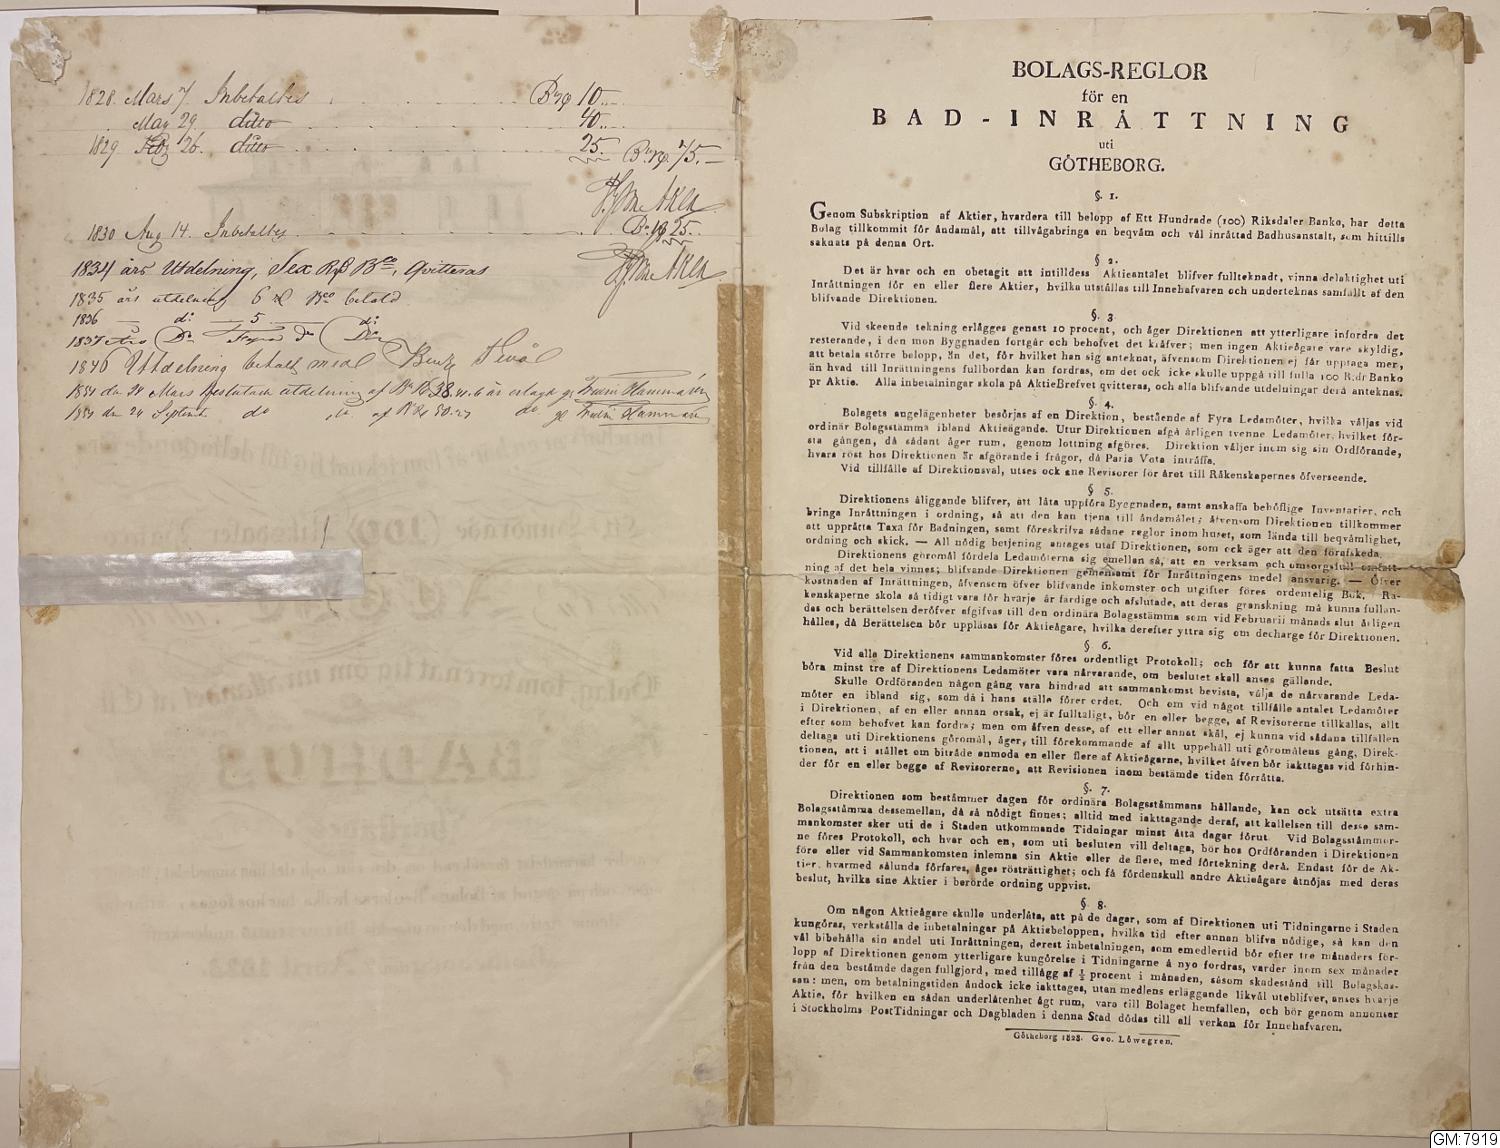 1828. Mars 7. Inbetaltes Bco 10.
May 29. ditto 40.
1829. Feb 26. ditto 25. Bco 75.
1830 Aug 14. Inbetaltes Bco 25.
1834 års Utdelning, Sex Bco, Qvitteras
1835 års utdelning 6 Bco betald
1836 do 5 do
1837
1846 Utdelning betalt med
1851 den 24 Mars beslutade utdelning af 38. är erlagd
1851 den 24 Septemb do af do
BOLAGS-REGLOR
för en
BAD-INRÄTTNING
uti
GÖTHEBORG.
§. 1.
Genom Subskription af Aktier, hvardera till belopp af Ett Hundrade (100) Riksdaler Banko, har detta
Bolag tillkommit för ändamål, att tillvägabringa en beqväm och väl inrättad Badhusanstalt, som hittills
saknats på denna Ort.
§ 2.
Det är hvar och en obetagit att intilldess Aktieantalet blifver fulltecknadt, vinna delaktighet uti
Inrättningen för en eller flere Aktier, hvilka utställas till Innehafvaren och underteknas samfällt af den
blifvande Direktionen.
§. 3.
Vid skeende tekning erlägges genast 10 procent, och äger Direktionen att ytterligare infordra det
resterande, i den mon Byggnaden fortgår och behofvet det kräfver; men ingen Aktieägare vare skyldig,
att betala större belopp, än det, för hvilket han sig anteknat, äfvensom Direktionen ej får upptaga mer,
än hvad till Inrättningens fullbordan kan fordras, om det ock icke skulle uppgå till fulla 100 R:dr Banko
pr Aktie. Alla inbetalningar skola på AktieBrefvet qvitteras, och alla blifvande utdelningar derå anteknas.
§. 4.
Bolagets angelägenheter besörjas af en Direktion, bestående af Fyra Ledamöter, hvilka väljas vid
ordinär Bolagsstämma ibland Aktieägande. Utur Direktionen afgå årligen tvenne Ledamöter, hvilket för-
sta gången, då sådant äger rum, genom lottning afgöres. Direktion väljer inom sig sin Ordförande,
hvars röst hos Direktionen är afgörande i frågor, då Paria Vota inträffa.
Vid tillfälle af Direktionsval, utses ock ene Revisorer för året till Räkenskapernes öfverseende.
§ 5.
Direktionens åliggande blifver, att låta uppföra Byggnaden, samt anskaffa behöflige Inventarier, och
bringa Inrättningen i ordning, så att den kan tjena till ändamålet; äfvensom Direktionen tillkommer
att upprätta Taxa för Badningen, samt föreskrifva sådane reglor inom huset, som lända till beqvämlighet,
ordning och skick. — All nödig betjening antages utaf Direktionen, som ock äger att den förafskeda.
Direktionens göromål fördela Ledamöterna sig emellan så, att en verksam och omsorgsfull omfatt-
ning af det hela vinnes; blifvande Direktionen gemensamt för Inrättningens medel ansvarig. — Öfver
kostnaden af Inrättningen, äfvensom öfver blifvande inkomster och utgifter föres ordentelig Bok. Rä-
kenskaperne skola så tidigt vara för hvarje år färdige och afslutade, att deras granskning må kunna fullän-
das och berättelsen deröfver afgifvas till den ordinära Bolagsstämma som vid Februarii månads slut årligen
hålles, då Berättelsen bör uppläsas för Aktieägare, hvilka derefter yttra sig om decharge för Direktionen.
§ 6.
Vid alla Direktionens sammankomster föres ordentligt Protokoll; och för att kunna fatta Beslut
böra minst tre af Direktionens Ledamöter vara närvarande, om beslutet skall anses gällande.
Skulle Ordföranden någon gång vara hindrad att sammankomst bevista, välja de närvarande Leda-
möter en ibland sig, som då i hans ställe förer ordet. Och om vid något tillfälle antalet Ledamöter
i Direktionen, af en eller annan orsak, ej är fulltaligt, bör en eller begge, af Revisorerne tillkallas, allt
efter som behofvet kan fordra; men om äfven desse, af ett eller annat skäl, ej kunna vid sådana tillfällen
deltaga uti Direktionens göromål, äger, till förekommande af allt uppehåll uti göromålens gång, Direk-
tionen, att i stället om biträde anmoda en eller flere af Aktieägarne, hvilket äfven bör iakttagas vid förhin-
der för en eller begge af Revisorerne, att Revisionen inom bestämde tiden förrätta.
§. 7.
Direktionen som bestämmer dagen för ordinära Bolagsstämmans hållande, kan ock utsätta extra
Bolagsstämma dessemellan, då så nödigt finnes; alltid med iakttagande deraf, att kallelsen till desse sam-
mankomster sker uti de i Staden utkommande Tidningar minst åtta dagar förut. Vid Bolagsstämmor-
ne föres Protokoll, och hvar och en, som uti besluten vill deltaga, bör hos Ordföranden i Direktionen
före eller vid Sammankomsten inlemna sin Aktie eller de flere, med förtekning derå. Endast för de Ak-
tier, hvarmed sålunda förfares, äges rösträttighet; och få fördenskull andre Aktieägare åtnöjas med deras
beslut, hvilka sine Aktier i berörde ordning uppvist.
§. 8.
Om någon Aktieägare skulle underlåta, att på de dagar, som af Direktionen uti Tidningarne i Staden
kungöras, verkställa de inbetalningar på Aktiebeloppen, hvilka tid efter annan blifva nödige, så kan den
väl bibehålla sin andel uti Inrättningen, derest inbetalningen, som emedlertid bör efter tre månaders för-
lopp af Direktionen genom ytterligare kungörelse i Tidningarne å nyo fordras, varder inom sex månader
från den bestämde dagen fullgjord, med tillägg af ½ procent i månaden, såsom skadestånd till Bolagskas-
san: men, om betalningstiden ändock icke iakttages, utan medlens erläggande likväl uteblifver, anses hvarje
Aktie, för hvilken en sådan underlåtenhet ägt rum, vara till Bolaget hemfallen, och bör genom annonser
i Stockholms PostTidningar och Dagbladen i denna Stad dödas till all verkan för Innehafvaren.
Götheborg 1828. Geo. Löwegren.
GM:7919